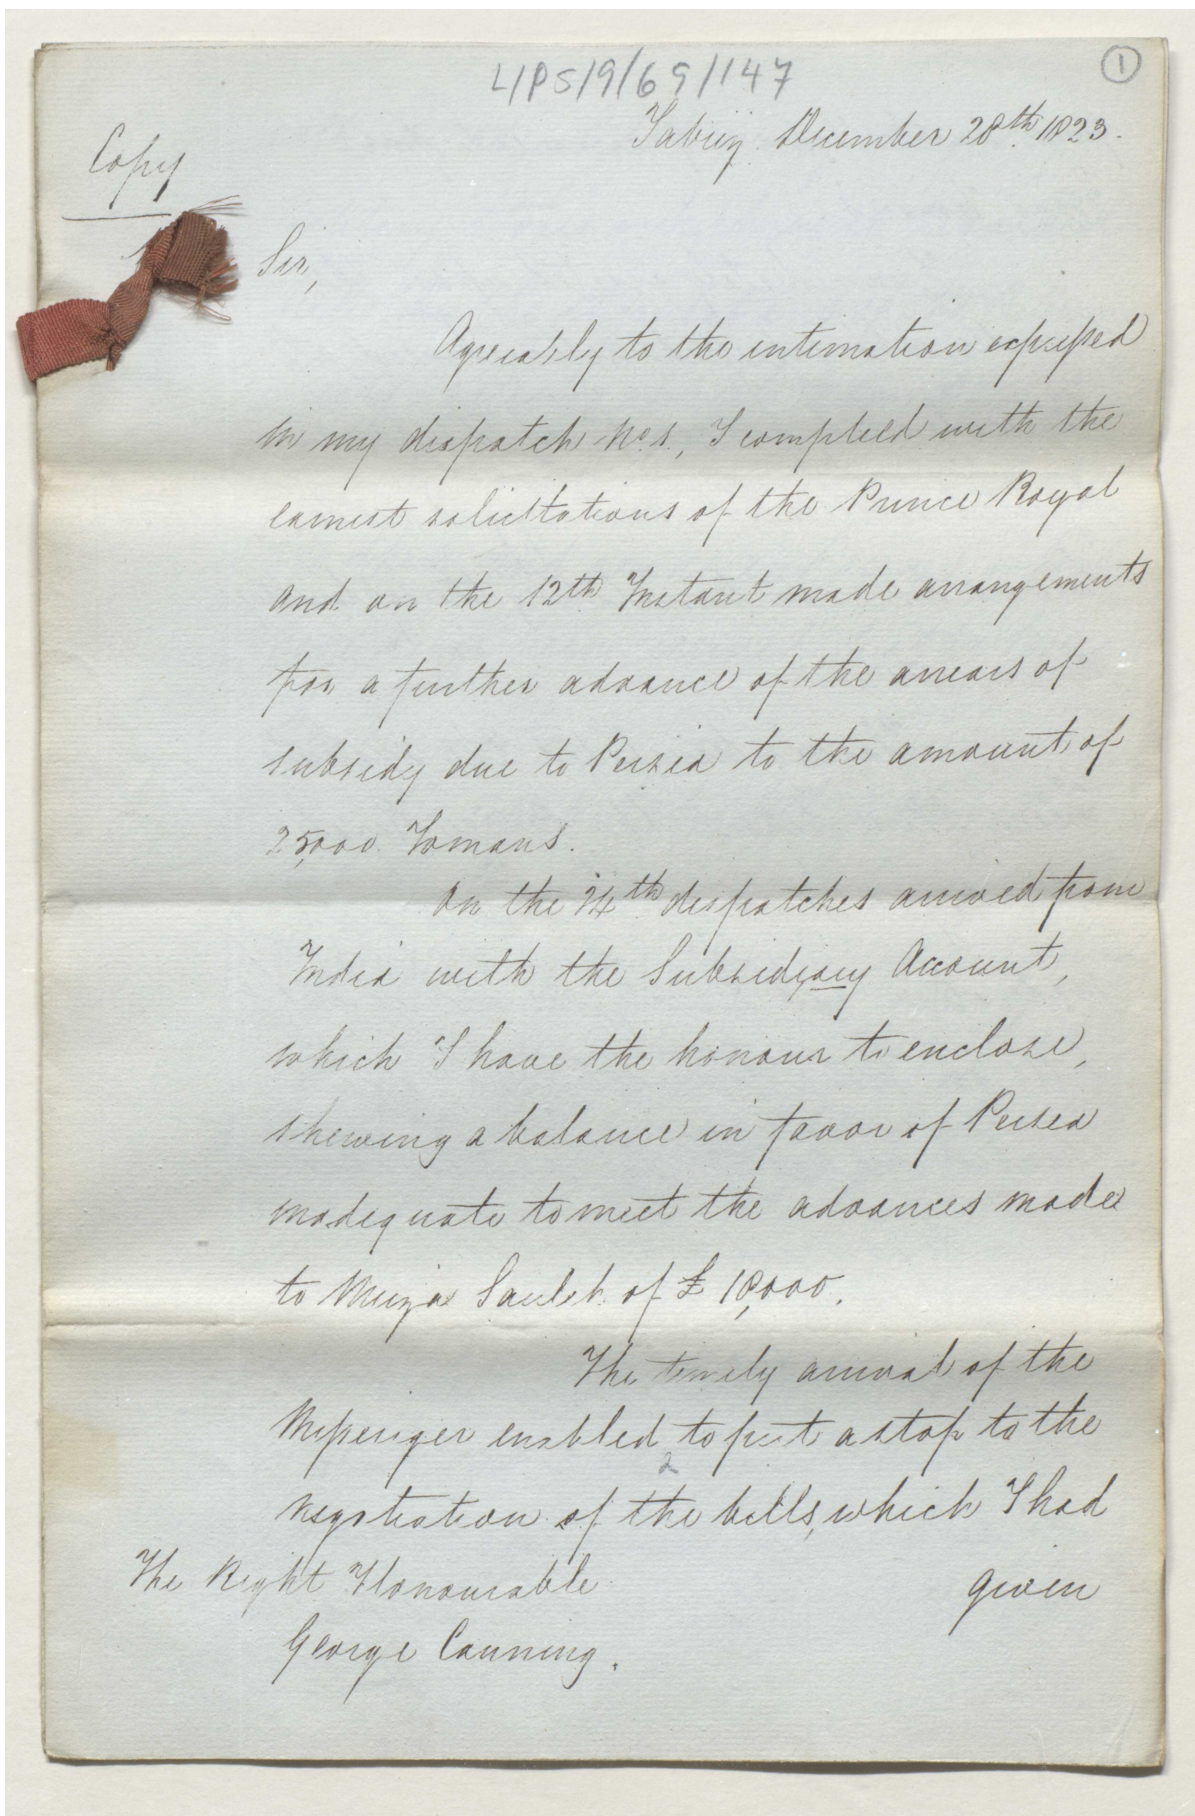 L/PS/9/69/147
1
Copy
Tabriz December 28th 1823.
Sir,
Agreeably to the intimation expressed
in my dispatch No 1, I complied with the
earnest solicitations of the Prince Royal
and on the 12th Instant made arrangements
for a further advance of the arrears of
subsidy due to Persia to the amount of
25,000 Tomans.
On the 24th dispatches arrived from
India with the Subsidyary Account,
which I have the honour to enclose,
shewing a balance in favor of Persia
inadequate to meet the advances made
to Mirza Sauleh of £ 18,000.
The timely arrival of the
Messenger enabled to put a stop to the
negotiation of the bills, which I had
given
The Right Honourable
George Canning.